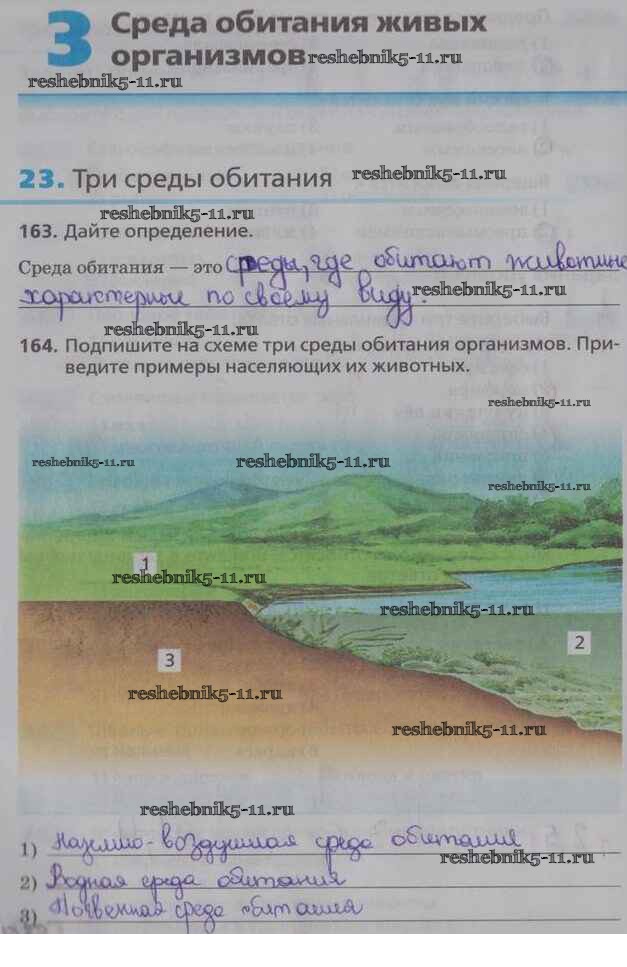 3 Среда обитания живых
организмов reshebnik5-11.ru
reshebnik5-11.ru
23. Три среды обитания reshebnik5-11.ru
reshebnik5-11.ru
163. Дайте определение.
Среда обитания — это среды, где обитают животные
характерные по своему виду. reshebnik5-11.ru
reshebnik5-11.ru
164. Подпишите на схеме три среды обитания организмов. При-
ведите примеры населяющих их животных.
reshebnik5-11.ru
reshebnik5-11.ru reshebnik5-11.ru
reshebnik5-11.ru
1
reshebnik5-11.ru
reshebnik5-11.ru
2
3
reshebnik5-11.ru
reshebnik5-11.ru
reshebnik5-11.ru
1) Наземно-воздушная среда обитания
reshebnik5-11.ru
2) Водная среда обитания
3) Почвенная среда обитания